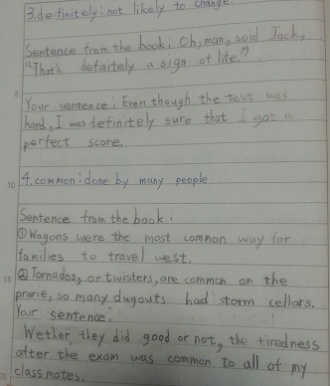 3. definitely: not likely to change.
Sentence from the book: Oh, man, said Jack,
"That's definitely a sign of life."
Your sentence: Even though the test was
hard, I was definitely sure that I got a
perfect score.
10 4. common: done by many people
Sentence from the book:
① Wagons were the most common way for
families to travel west.
15 ② Tornados, or twisters, are common on the
prarie, so many dugouts had storm cellars.
Your sentence:
Wether they did good or not, the tiredness
after the exam was common to all of my
20 classmates.